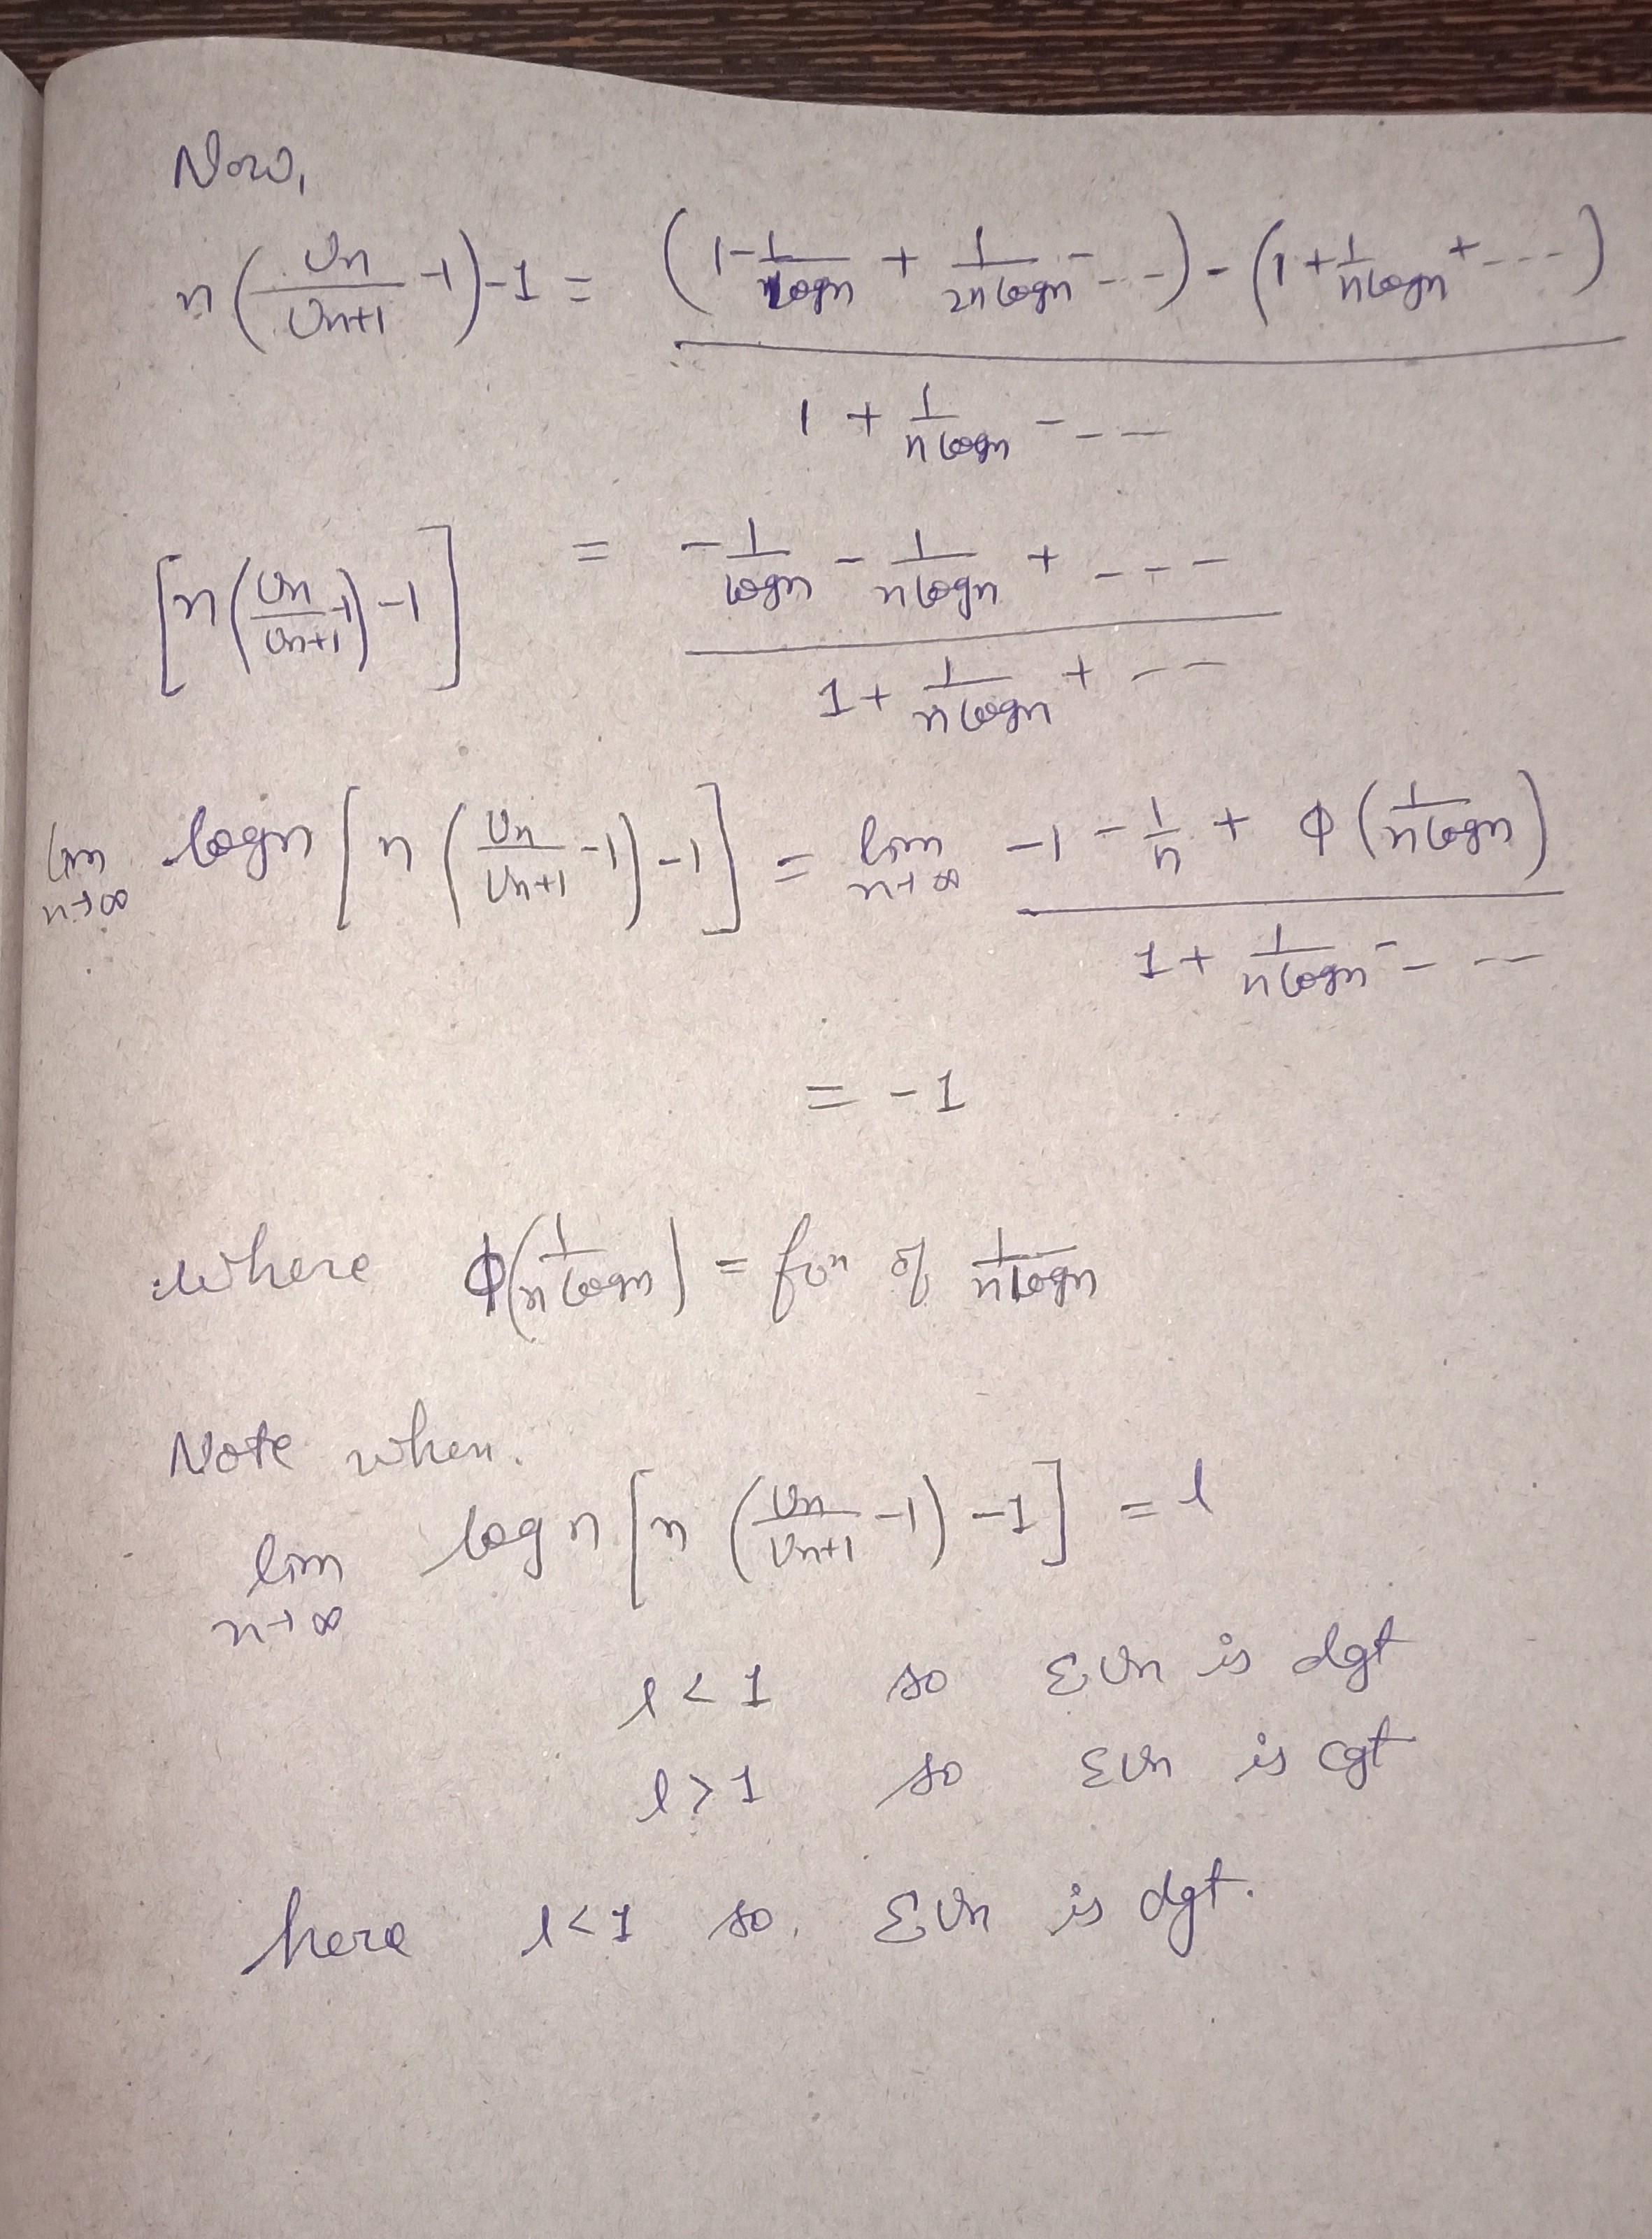 Now,
n(Un/Un+1 -1)-1 = ((1-1/logn + 1/2nlogn - ---) - (1+1/nlogn + ---))/(1 + 1/nlogn ---)
[n(Un/Un+1 -1)-1] = (-1/logn - 1/nlogn + ---)/(1+ 1/nlogn + --)
lim n→∞ logn [n(Un/Un+1 -1)-1] = lim n→∞ (-1 - 1/n + ϕ(1/nlogn))/(1+ 1/nlogn - ---)
= -1
where ϕ(1/nlogn) = fun of 1/nlogn
Note when.
lim n→∞ log n [n (Un/Un+1 -1) -1] = l
l < 1 so ΣUn is dgt
l > 1 so ΣUn is cgt
here l<1 so, ΣUn is dgt.